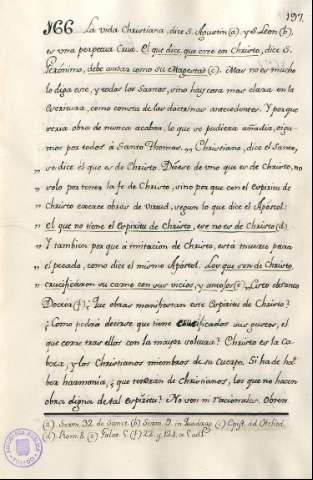 197.
166. La vida Christiana, dice S. Agustin (a). y S. Leon (b).
es una perpetua Cruz. El que dice, que cree en Christo, dice S.
Gerónimo, debe andar como su Magestad (c). Mas no es mucho
lo diga este, y todos los Santos, sino hay cosa mas clara en la
Escritura, como consta de las doctrinas antecedentes. Y porque
seria obra de nunca acabar, lo que se pudiera añadir, oiga-
mos por todos á Santo Thomas. „ Christiano, dice el Santo,
„ se dice el que es de Christo. Dicese de uno que es de Christo, no
„ solo por tener la fe de Christo, sino por que con el espiritu de
„ Christo exerce obras de virtud, segun lo que dice el Apostol:
„ El que no tiene el Espiritu de Christo, ese no es de Christo (d).
„ Y tambien por que á imitacion de Christo, está muerto para
„ el pecado, como dice el mismo Apóstol. Los que son de Christo,
„ crucificáron su carne con sus vicios, y
Doctor (f). ¿Que obras manifiestan este Espiritu de Christo?
¿Como podrá decirse que tiene crucificados sus gustos, el
que corre tras ellos con la mayor soltura? Christo es la Ca-
beza, y los Christianos miembros de su Cuerpo. Si ha de ha-
ber harmonia, ¿que tendrán de Christianos, los que no hacen
obra digna de tal espiritu? No son ni racionales. Obren
(a). Serm. 32. de Sanct. (b) Serm. 9. in Quadrag. (c) Epist. ad
(d). Rom. 8. (e) Galat. 5. (f) 22. q. 124. a. 5. ad 1.